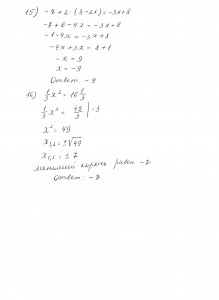 15) -7+2·(3-2x)=-3x+8
-7+6-4x=-3x+8
-1-4x=-3x+8
-4x+3x=8+1
-x=9
x=-9
Ответ: -9
16) 1/3 x² = 16 1/3
1/3 x² = 49/3 |·3
x² = 49
x₁,₂ = ±√49
x₁,₂ = ±7
меньший корень равен -7
Ответ: -7